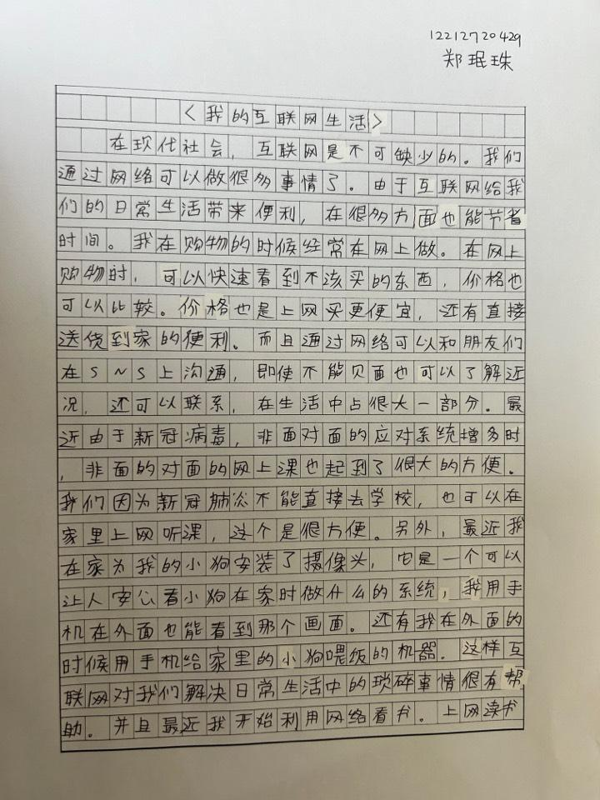 12212720429
郑珉珠
<我的互联网生活>
在现代社会，互联网是不可缺少的。我们
通过网络可以做很多事情了。由于互联网给我
们的日常生活带来便利，在很多方面也能节省
时间。我在购物的时候经常在网上做。在网上
购物时，可以快速看到不该买的东西，价格也
可以比较。价格也是上网买更便宜，还有直接
送货到家的便利。而且通过网络可以和朋友们
在SNS上沟通，即使不能见面也可以了解近
况，还可以联系，在生活中占很大一部分。最
近由于新冠病毒，非面对面的应对系统增多时
，非面的对面的网上课也起到了很大的方便。
我们因为新冠肺炎不能直接去学校，也可以在
家里上网听课，这个是很方便。另外，最近我
在家为我的小狗安装了摄像头，它是一个可以
让人安心看小狗在家时做什么的系统，我用手
机在外面也能看到那个画面。还有我在外面的
时候用手机给家里的小狗喂饭的机器。这样互
联网对我们解决日常生活中的琐碎事情很有帮
助。并且最近我开始利用网络看书。上网读书